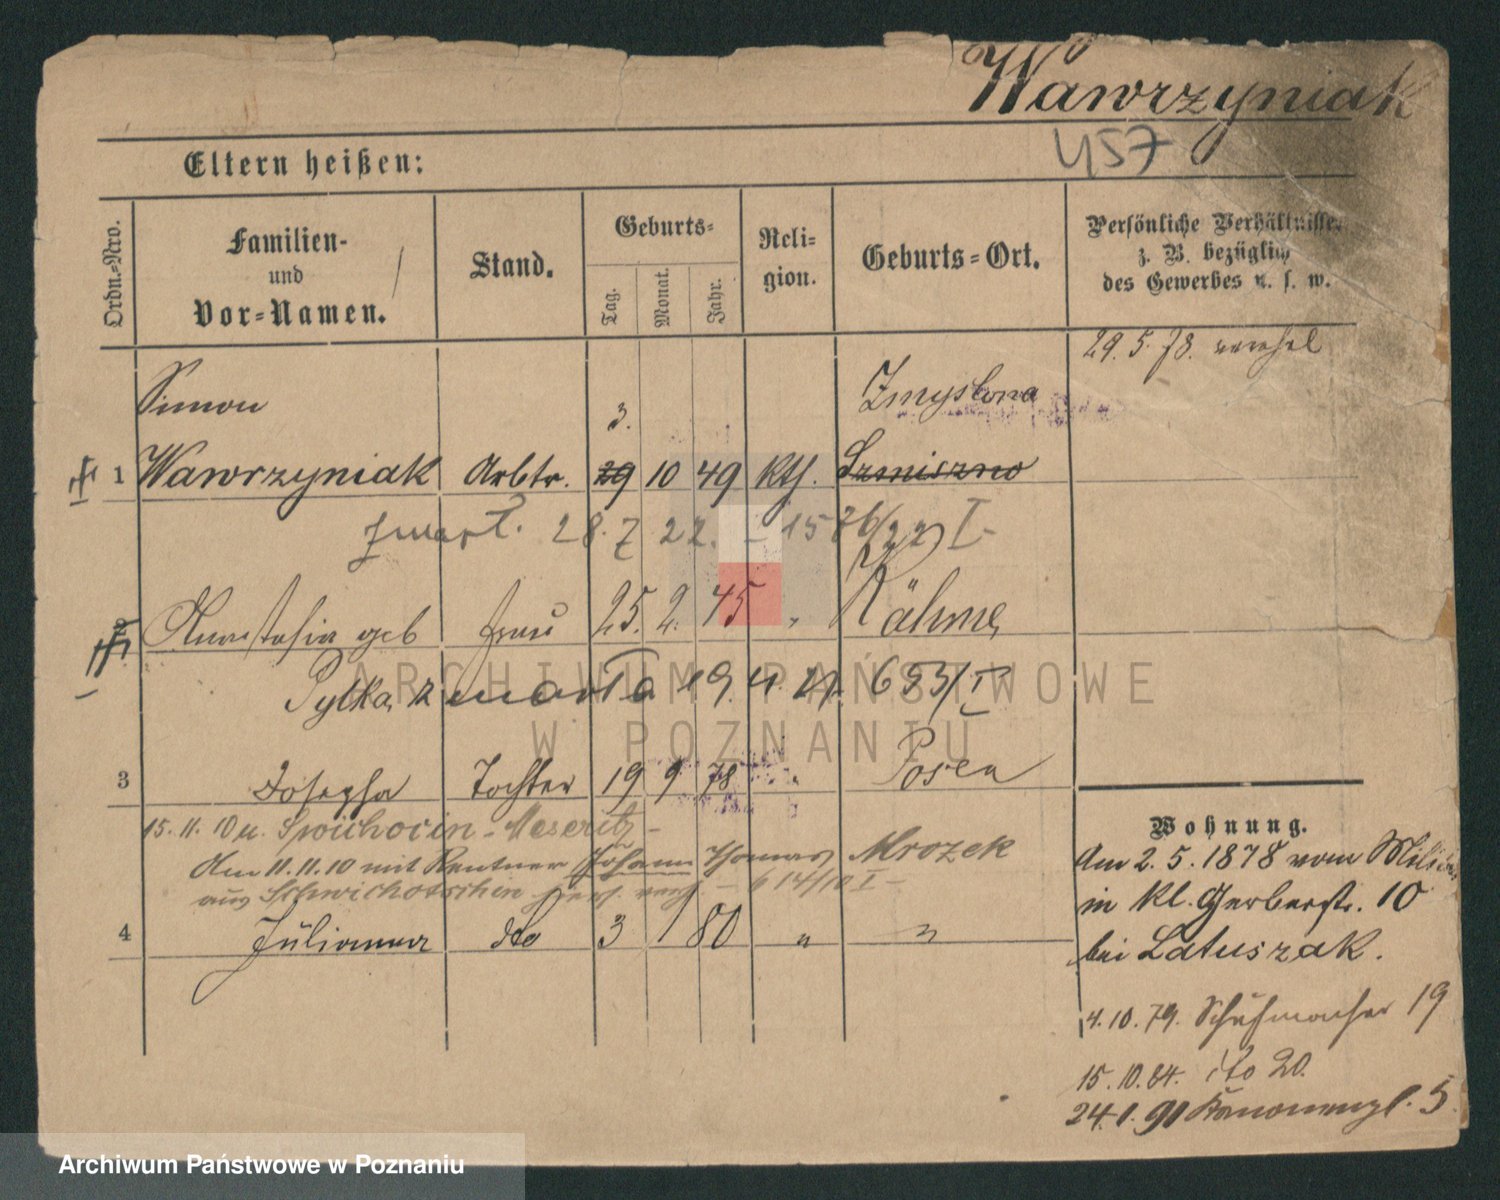 Wawrzyniak
457
Eltern heißen:
Ordn.-Nro.
Familien-
und
Vor-Namen.
Stand.
Geburts-
Tag.
Monat.
Jahr.
Reli-
gion.
Geburts-Ort.
Persönliche Verhältnisse
z. B. bezüglich
des Gewerbes u. s. w.
29. 5. 78.
Simon
3.
Zmyslona
1 Wawrzyniak Arbtr. 29 10 49 Kth. Szmiszno
zmarł. 28. 7 22. - 1576/22 I-
2 Anastasia geb Frau 25. 2. 45 " Kähme
Pytka, zmarła 19. 4. 21. 653/I
3 Josepha Tochter 19 9 78 " Posen
15. 11. 10 u. Schwichocin - Meseritz -
Am 11. 11. 10 mit Rentner Johann Thomas Mrozek
aus Schwichotschin verh. - 614/10 I -
4 Julianna dto 3 1 80 " "
Wohnung.
Am 2. 5. 1878 vom Militär
in Kl. Gerberstr. 10
bei Latuszak.
4. 10. 79. Schuhmacher 19
15. 10. 84. dto 20.
24. 1. 91 Kanonenpl. 5
ARCHIWUM PAŃSTWOWE
W POZNANIU
Archiwum Państwowe w Poznaniu